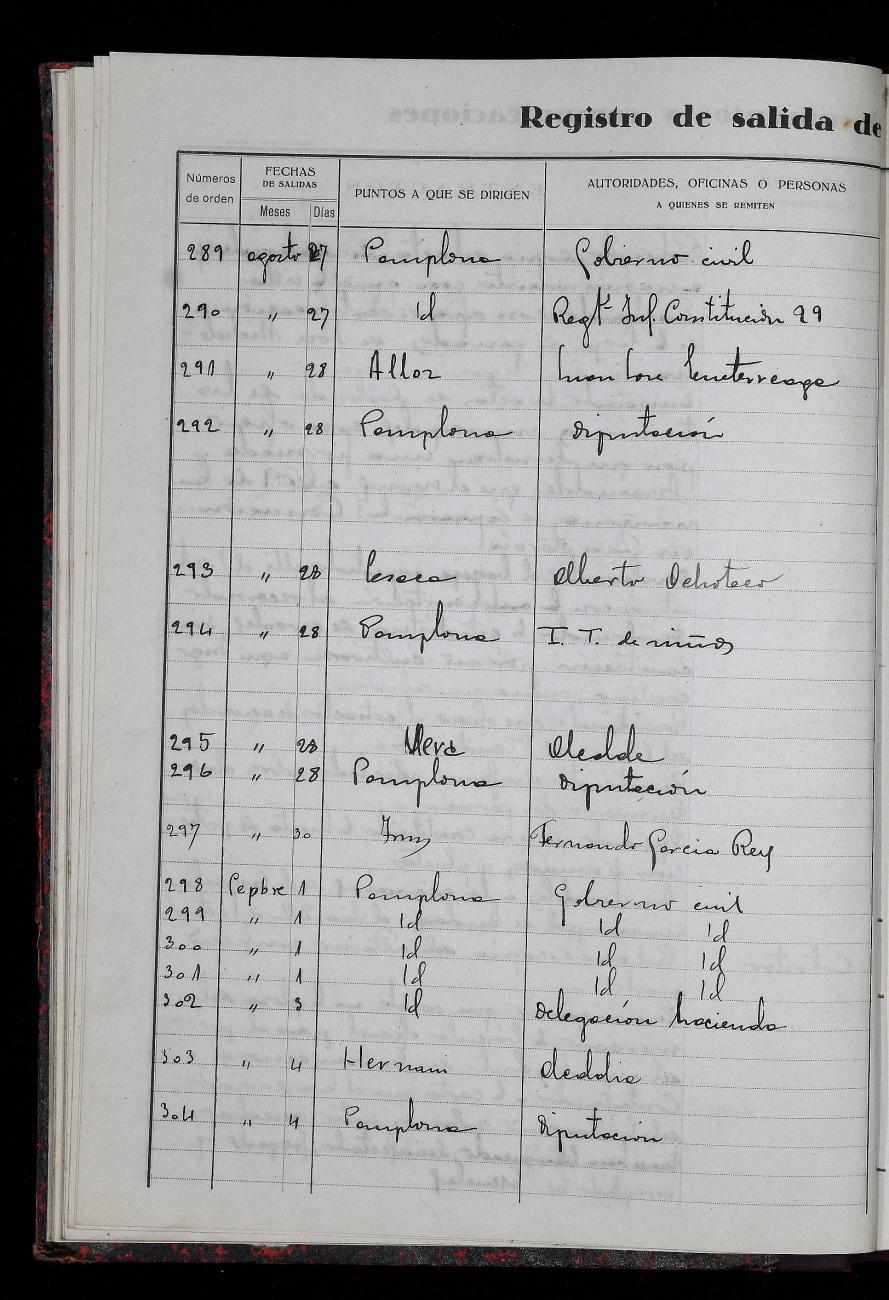 Registro de salida de
Números de orden | FECHAS DE SALIDAS Meses Días | PUNTOS A QUE SE DIRIGEN | AUTORIDADES, OFICINAS O PERSONAS A QUIENES SE REMITEN
289 agosto 27 Pamplona Gobierno civil
290 " 27 Id Regt Inf. Constitución 29
291 " 28 Alloz
292 " 28 Pamplona Diputación
293 " 28 Lesaca Alberto Ochoteco
294 " 28 Pamplona I. T. de niños
295 " 28 Vera Alcalde
296 " 28 Pamplona Diputación
297 " 30 Irun Fernando Garcia Rey
298 Sepbre 1 Pamplona Gobierno civil
299 " 1 Id Id Id
300 " 1 Id Id Id
301 " 1 Id Id Id
302 " 3 Id Delegación hacienda
303 " 4 Hernani Alcaldia
304 " 4 Pamplona Diputación